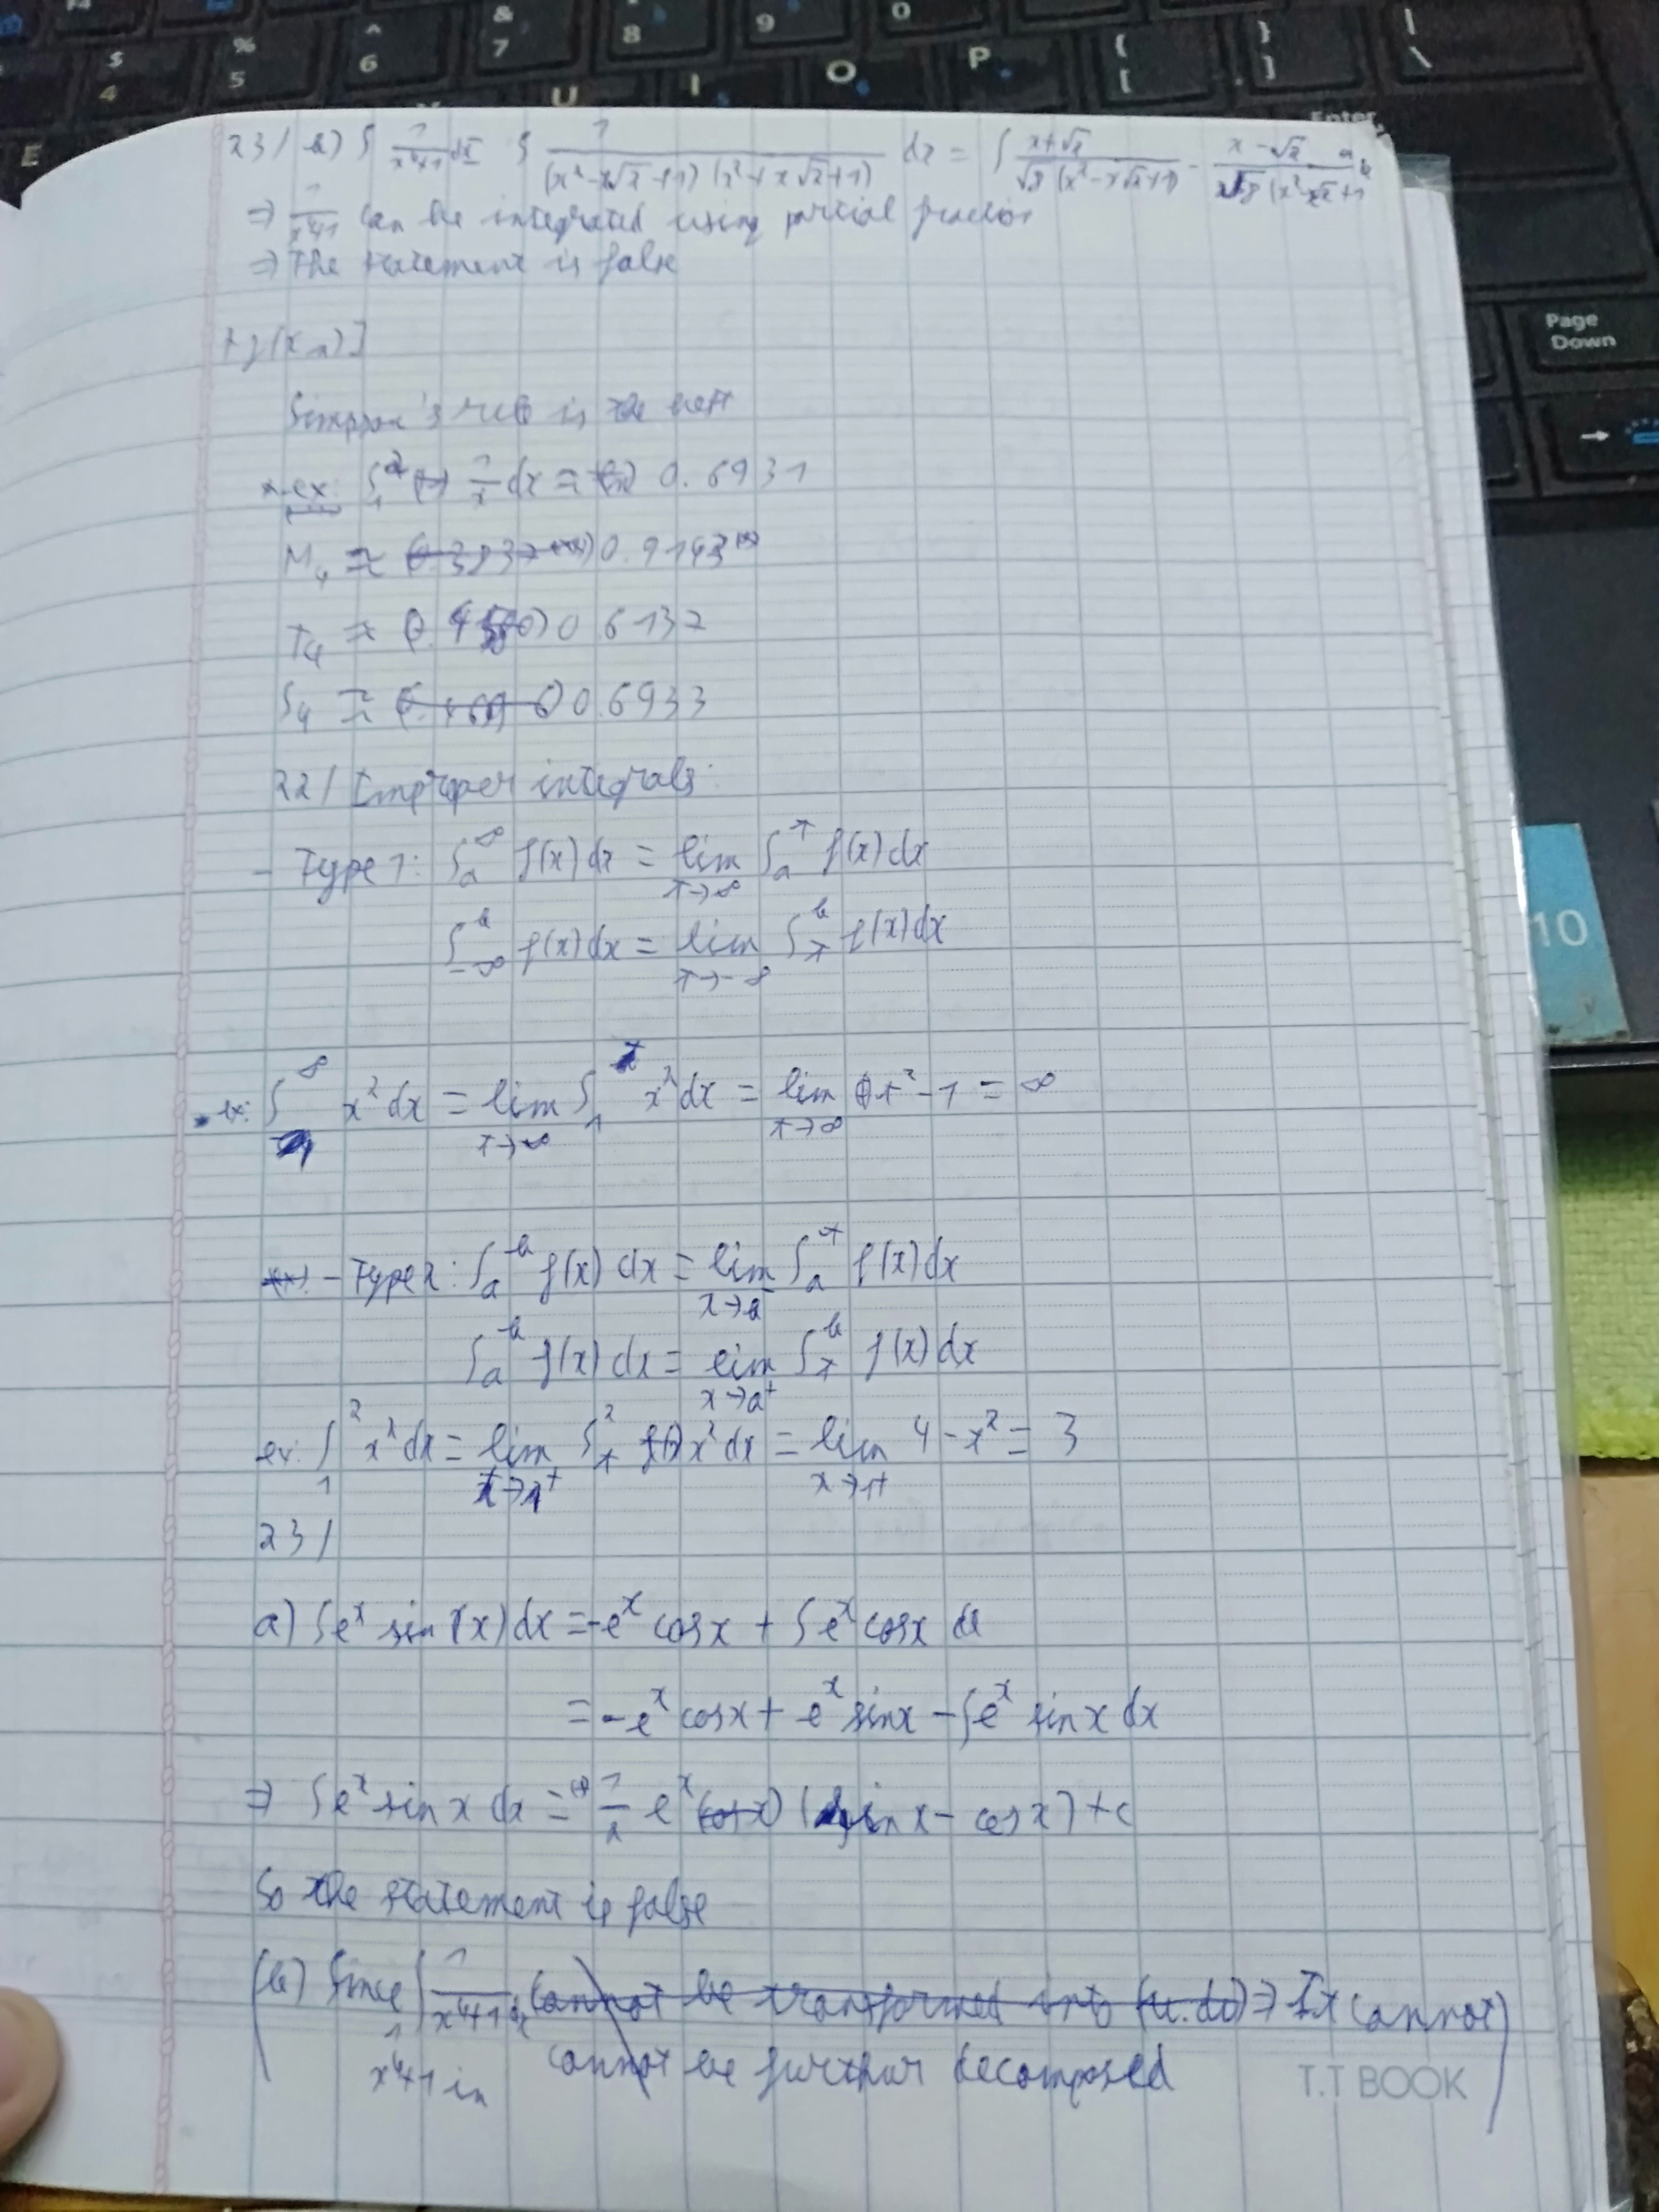 23/ b) ∫ 1/(x⁴+1) dx = ∫ 1/((x²-x√2+1)(x²+x√2+1)) dx = ∫ (x+√2)/(√8(x²-x√2+1)) - (x-√2)/(√8(x²-x√2+1
⇒ 1/(x⁴+1) can be integrated using partial fraction
⇒ The statement is false
+ f(xₙ)]
Simpson's rule is the best
ex: ∫₁² 1/x dx = 0.6931
M₄ ≈ 0.9143
T₄ ≈ 0.6137
S₄ ≈ 0.6933
22/ Improper integrals:
- Type 1: ∫ₐ^∞ f(x) dx = lim t→∞ ∫ₐ^t f(x) dx
∫_-∞^b f(x) dx = lim t→-∞ ∫_t^b f(x) dx
ex: ∫₁^∞ x² dx = lim t→∞ ∫₁^t x² dx = lim t→∞ t² - 1 = ∞
- Type 2: ∫ₐ^b f(x) dx = lim ∫ₐ^t f(x) dx
∫ₐ^b f(x) dx = lim x→a⁺ ∫_t^b f(x) dx
ex: ∫₁² x² dx = lim t→1⁺ ∫_t² x² dx = lim x→1⁺ 4 - x² = 3
23/
a) ∫ eˣ sin(x) dx = -eˣ cosx + ∫ eˣ cosx dx
= -eˣ cosx + eˣ sinx - ∫ eˣ sinx dx
⇒ ∫ eˣ sinx dx = 1/2 eˣ (sinx - cosx) + c
So the statement is false
(b) Since ∫ 1/(x⁴+1) dx cannot be transformed into (u.dv) ⇒ It cannot)
1/(x⁴+1) in cannot be further decomposed
T.T BOOK
$ 4
% 5
^ 6
& 7
8
9
0
E
U
I
O
P
{ [
} ]
| \
Enter
Page Down
10